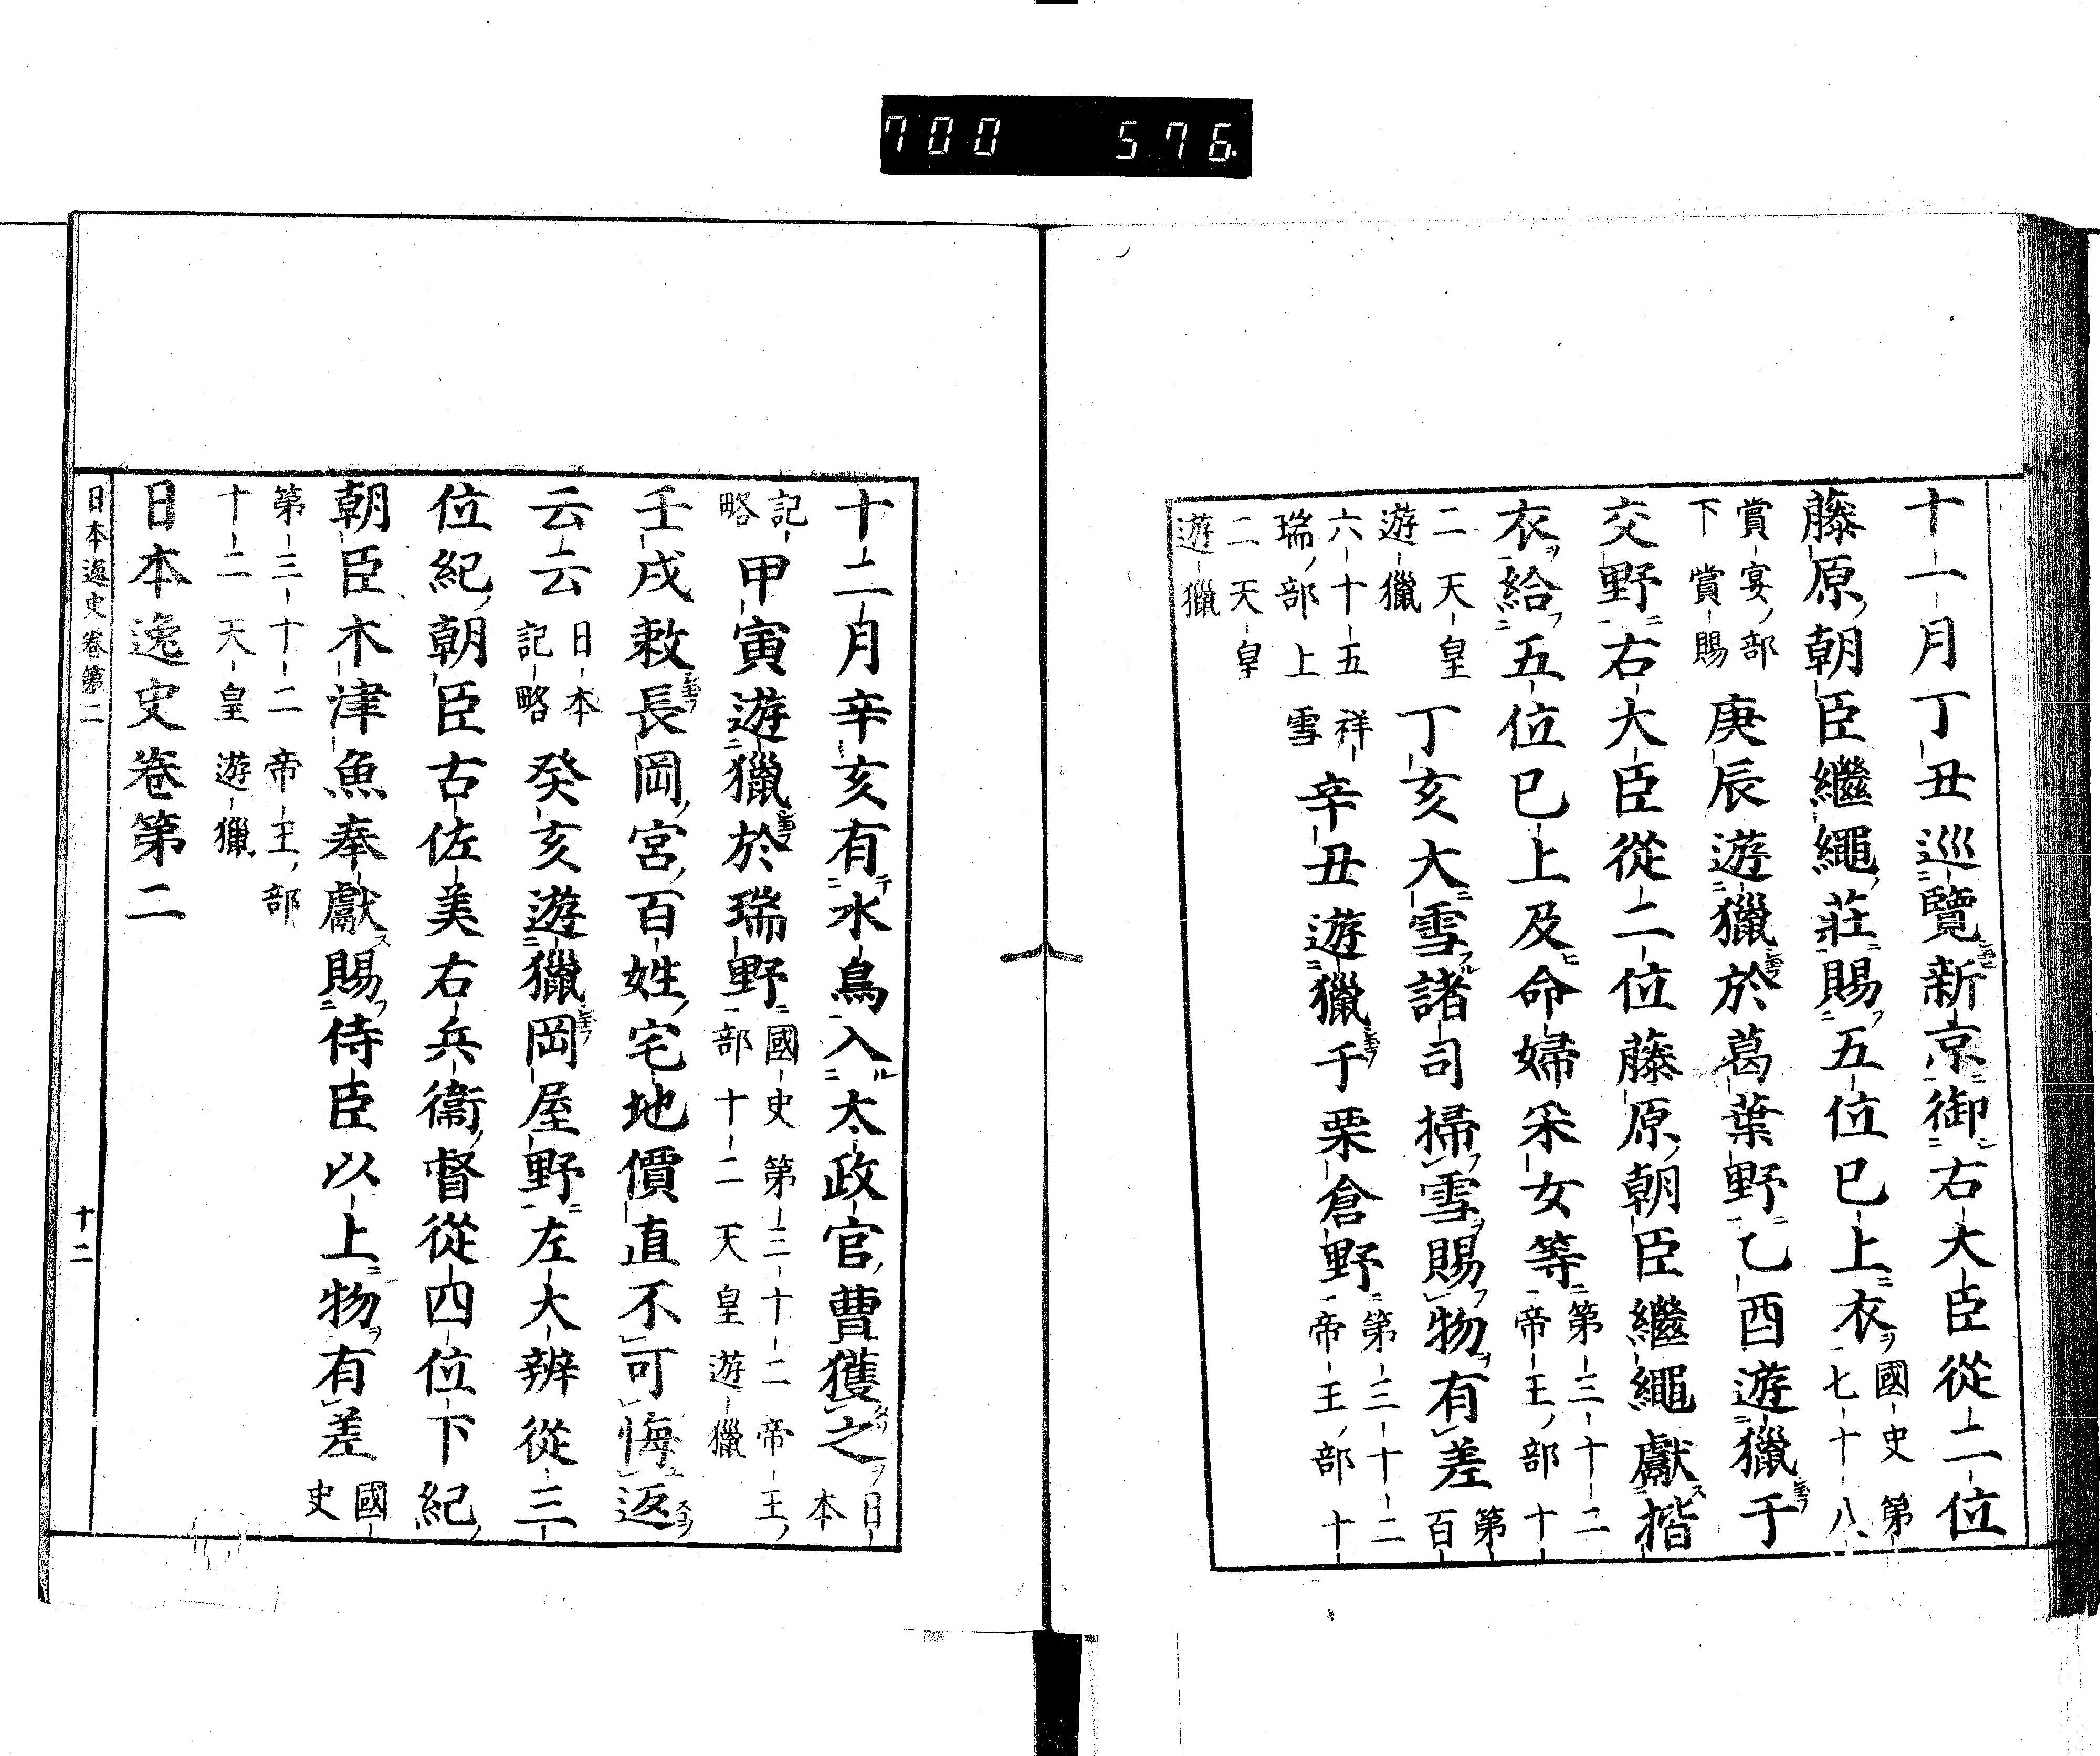 700 576.
十一月丁丑巡覽新京御右大臣從二位
藤原朝臣繼繩莊賜五位已上衣國史第七十八
賞宴部下賞賜庚辰遊獵於葛葉野乙酉遊獵于
交野右大臣從二位藤原朝臣繼繩獻揩
衣給五位已上及命婦采女等第三十二帝王部十
二天皇遊獵丁亥大雪諸司掃雪賜物有差第百
六十五祥瑞部上雪辛丑遊獵于栗倉野第三十二帝王部十
二天皇遊獵
十二月辛亥有水鳥入太政官曹獲之日本
記略甲寅遊獵於瑞野國史第三十二帝王部十二天皇遊獵
壬戌敕長岡宮百姓宅地價直不可悔返
云云日本記略癸亥遊獵岡屋野左大辨從三
位紀朝臣古佐美右兵衞督從四位下紀
朝臣木津魚奉獻賜侍臣以上物有差國史
第三十二帝王部十二天皇遊獵
日本逸史卷第二
日本逸史卷第二 十二